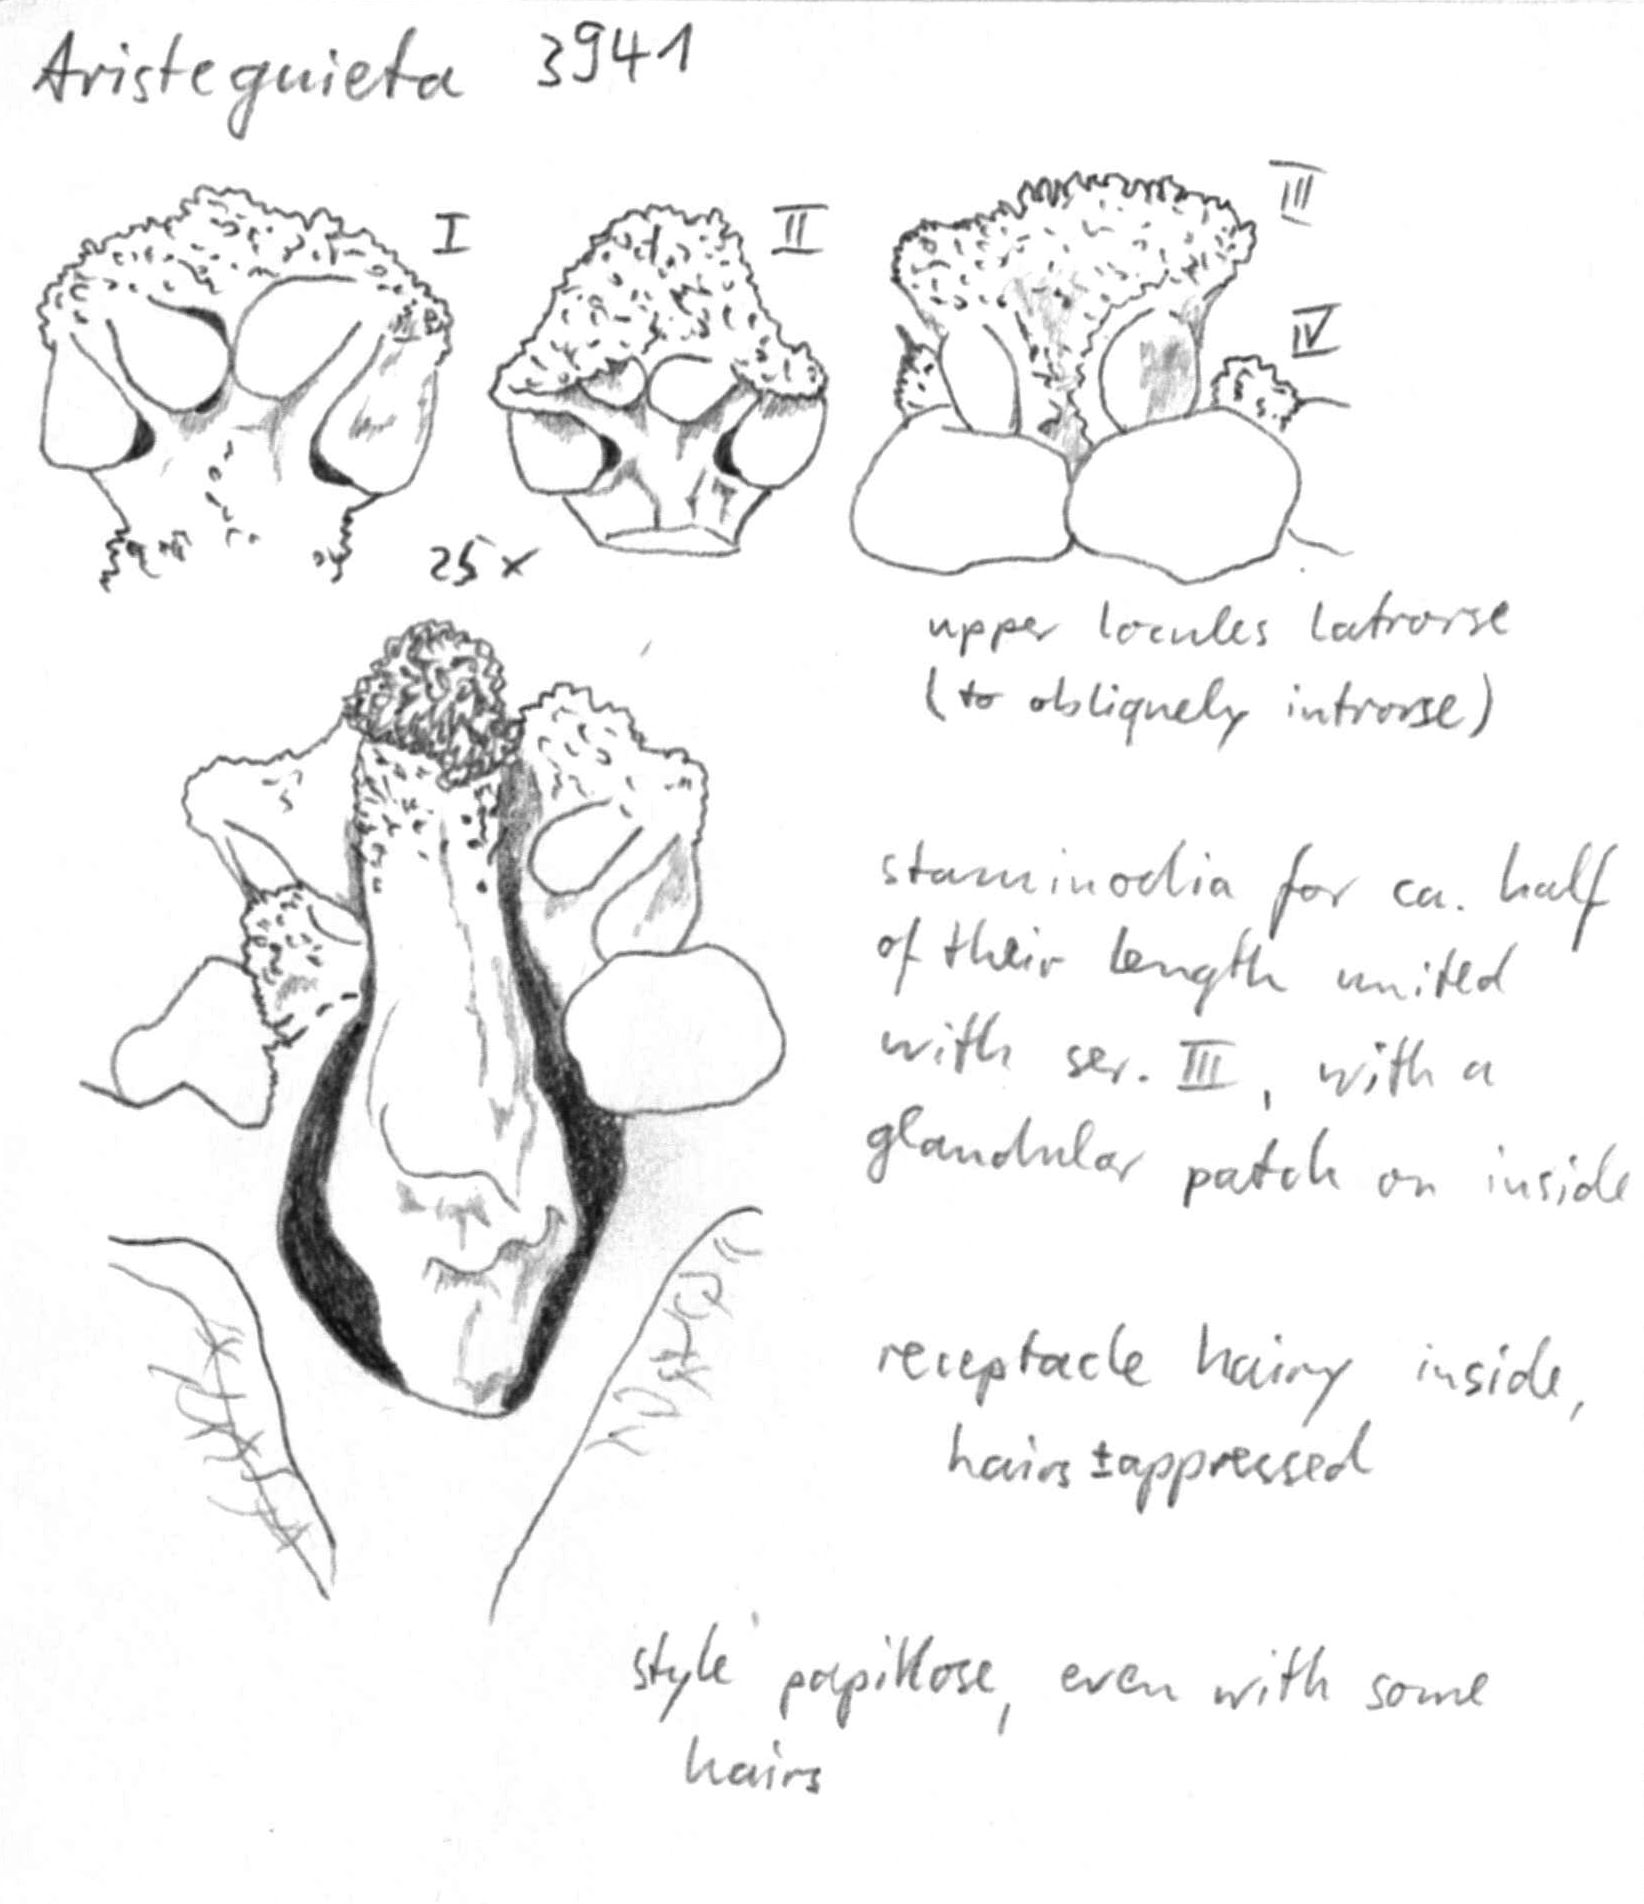 Aristeguieta 3941
I
II
III
IV
25 x
upper locules latrorse
(to obliquely introrse)
staminodia for ca. half
of their length united
with ser. III, with a
glandular patch on inside
receptacle hairy inside,
hairs ± appressed
style papillose, even with some
hairs